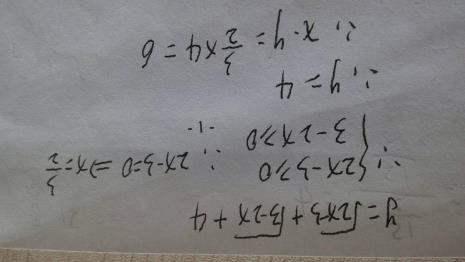 y=√2x-3+√3-2x+4
∵{2x-3≥0
3-2x≥0
∴ 2x-3=0 ⇒x=3/2
-1-
∴ y=4
∴ x·y=3/2×4=6